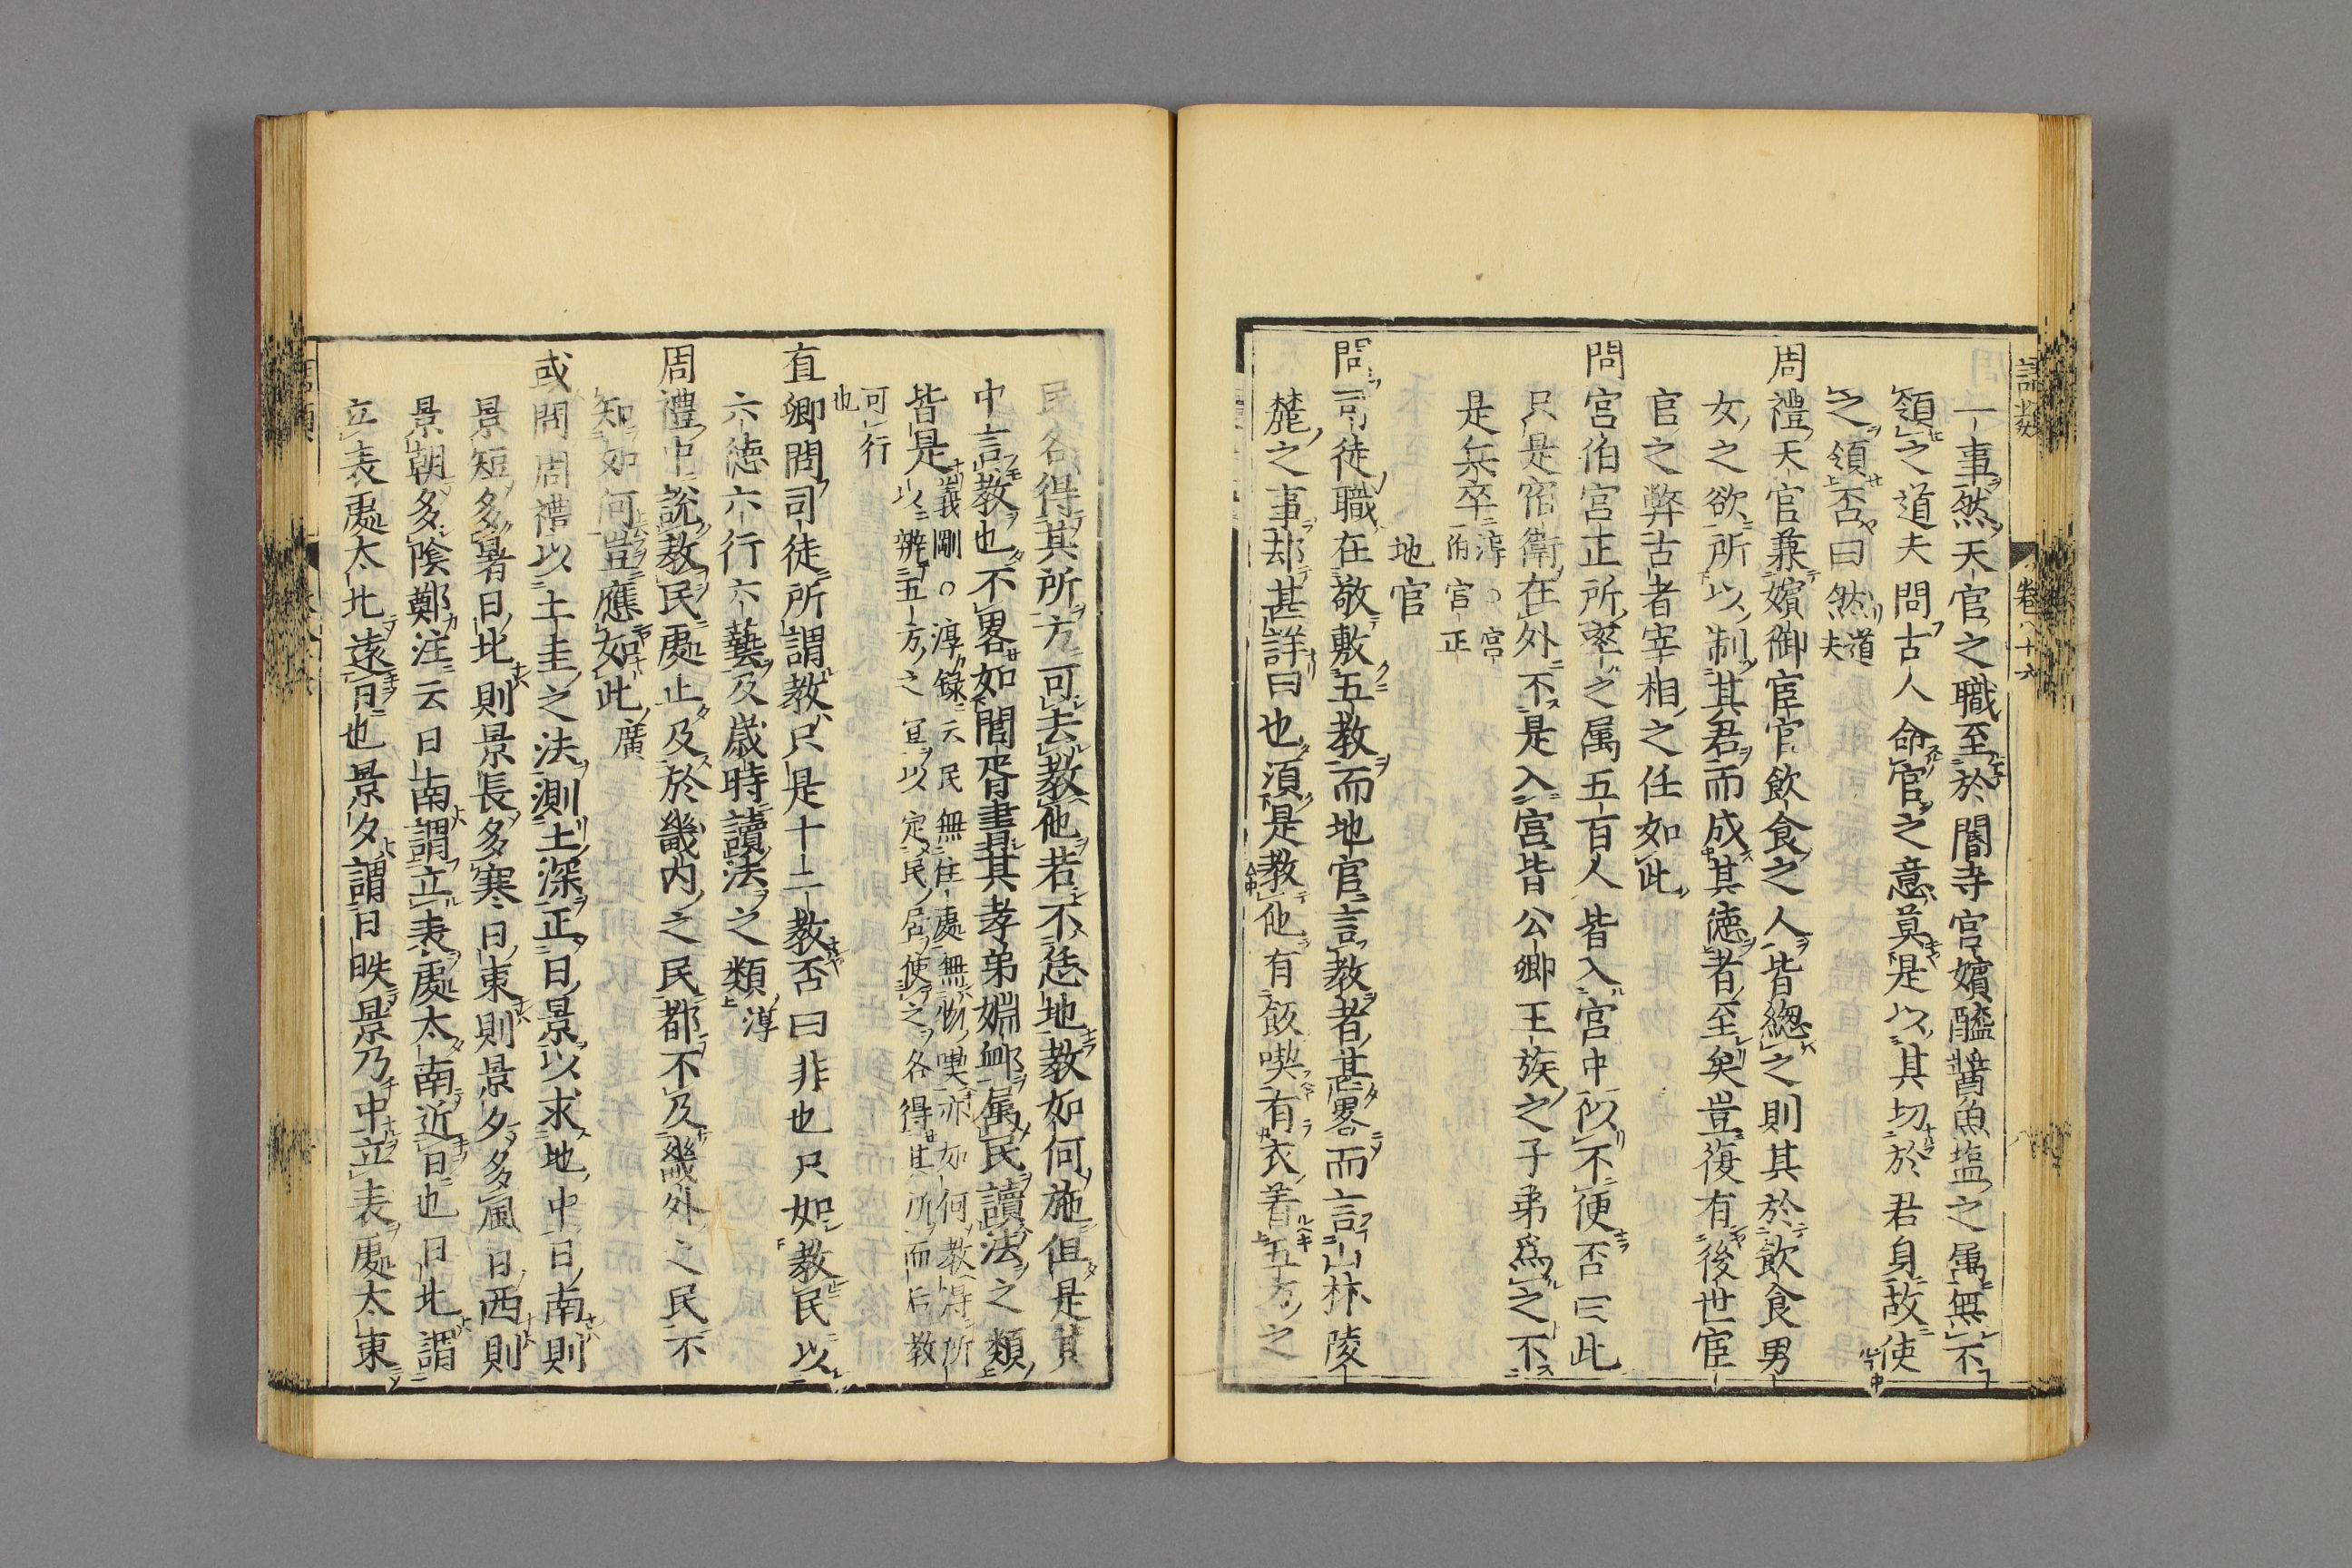 語類 卷八十六
一事然天官之職至於閽寺宮嬪醯醬魚塩之属無不
領之道夫問古人命官之意莫是以其切於君身故使
之領否曰然道夫
周禮天官兼嬪御宦官飲食之人皆緫之則其於飲食男
女之欲所以制其君而成其德者至矣豈復有後世宦
官之弊古者宰相之任如此
問宮伯宮正所率之属五百人皆入宮中似不便否曰此
只是宿衛在外不是入宮皆公卿王族之子弟爲之不
是兵卒淳○宮伯宮正
地官
問司徒職在敬敷五教而地官言教者甚畧而言山林陵
麓之事却甚詳曰也須是教他有飲喫有衣著五方之
民各得其所方可去教他若不恁地教如何施但是其
中言教也不畧如閭胥書其孝弟婣卹属民讀法之類
皆是義剛○淳錄云民無住處無物喫亦如何教得所
以辨五方之宜以定民居使之各得其所而后教
可行
也
直卿問司徒所謂教只是十二教否曰非也只如教民以
六德六行六藝及歲時讀法之類淳
周禮中說教民處止及於畿内之民都不及畿外之民不
知如何豈應如此廣
或問周禮以土圭之法測土深正日景以求地中日南則
景短多暑日北則景長多寒日東則景夕多風日西則
景朝多陰鄭注云日南謂立表處太南近日也日北謂
立表處太北遠日也景夕謂日昳景乃中立表處太東